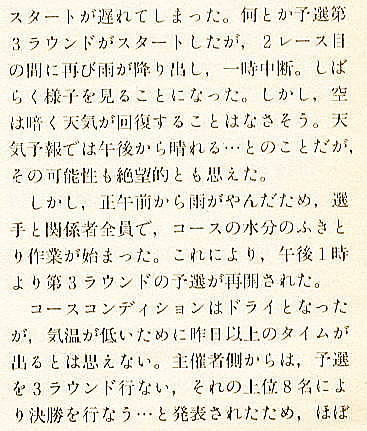 スタートが遅れてしまった。何とか予選第
3ラウンドがスタートしたが，2レース目
の間に再び雨が降り出し，一時中断。しば
らく様子を見ることになった。しかし，空
は暗く天気が回復することはなさそう。天
気予報では午後から晴れる…とのことだが，
その可能性も絶望的とも思えた。
　しかし，正午前から雨がやんだため，選
手と関係者全員で，コースの水分のふきと
り作業が始まった。これにより，午後1時
より第3ラウンドの予選が再開された。
　コースコンディションはドライとなった
が，気温が低いために昨日以上のタイムが
出るとは思えない。主催者側からは，予選
を3ラウンド行ない，それの上位8名によ
り決勝を行なう…と発表されたため，ほぼ